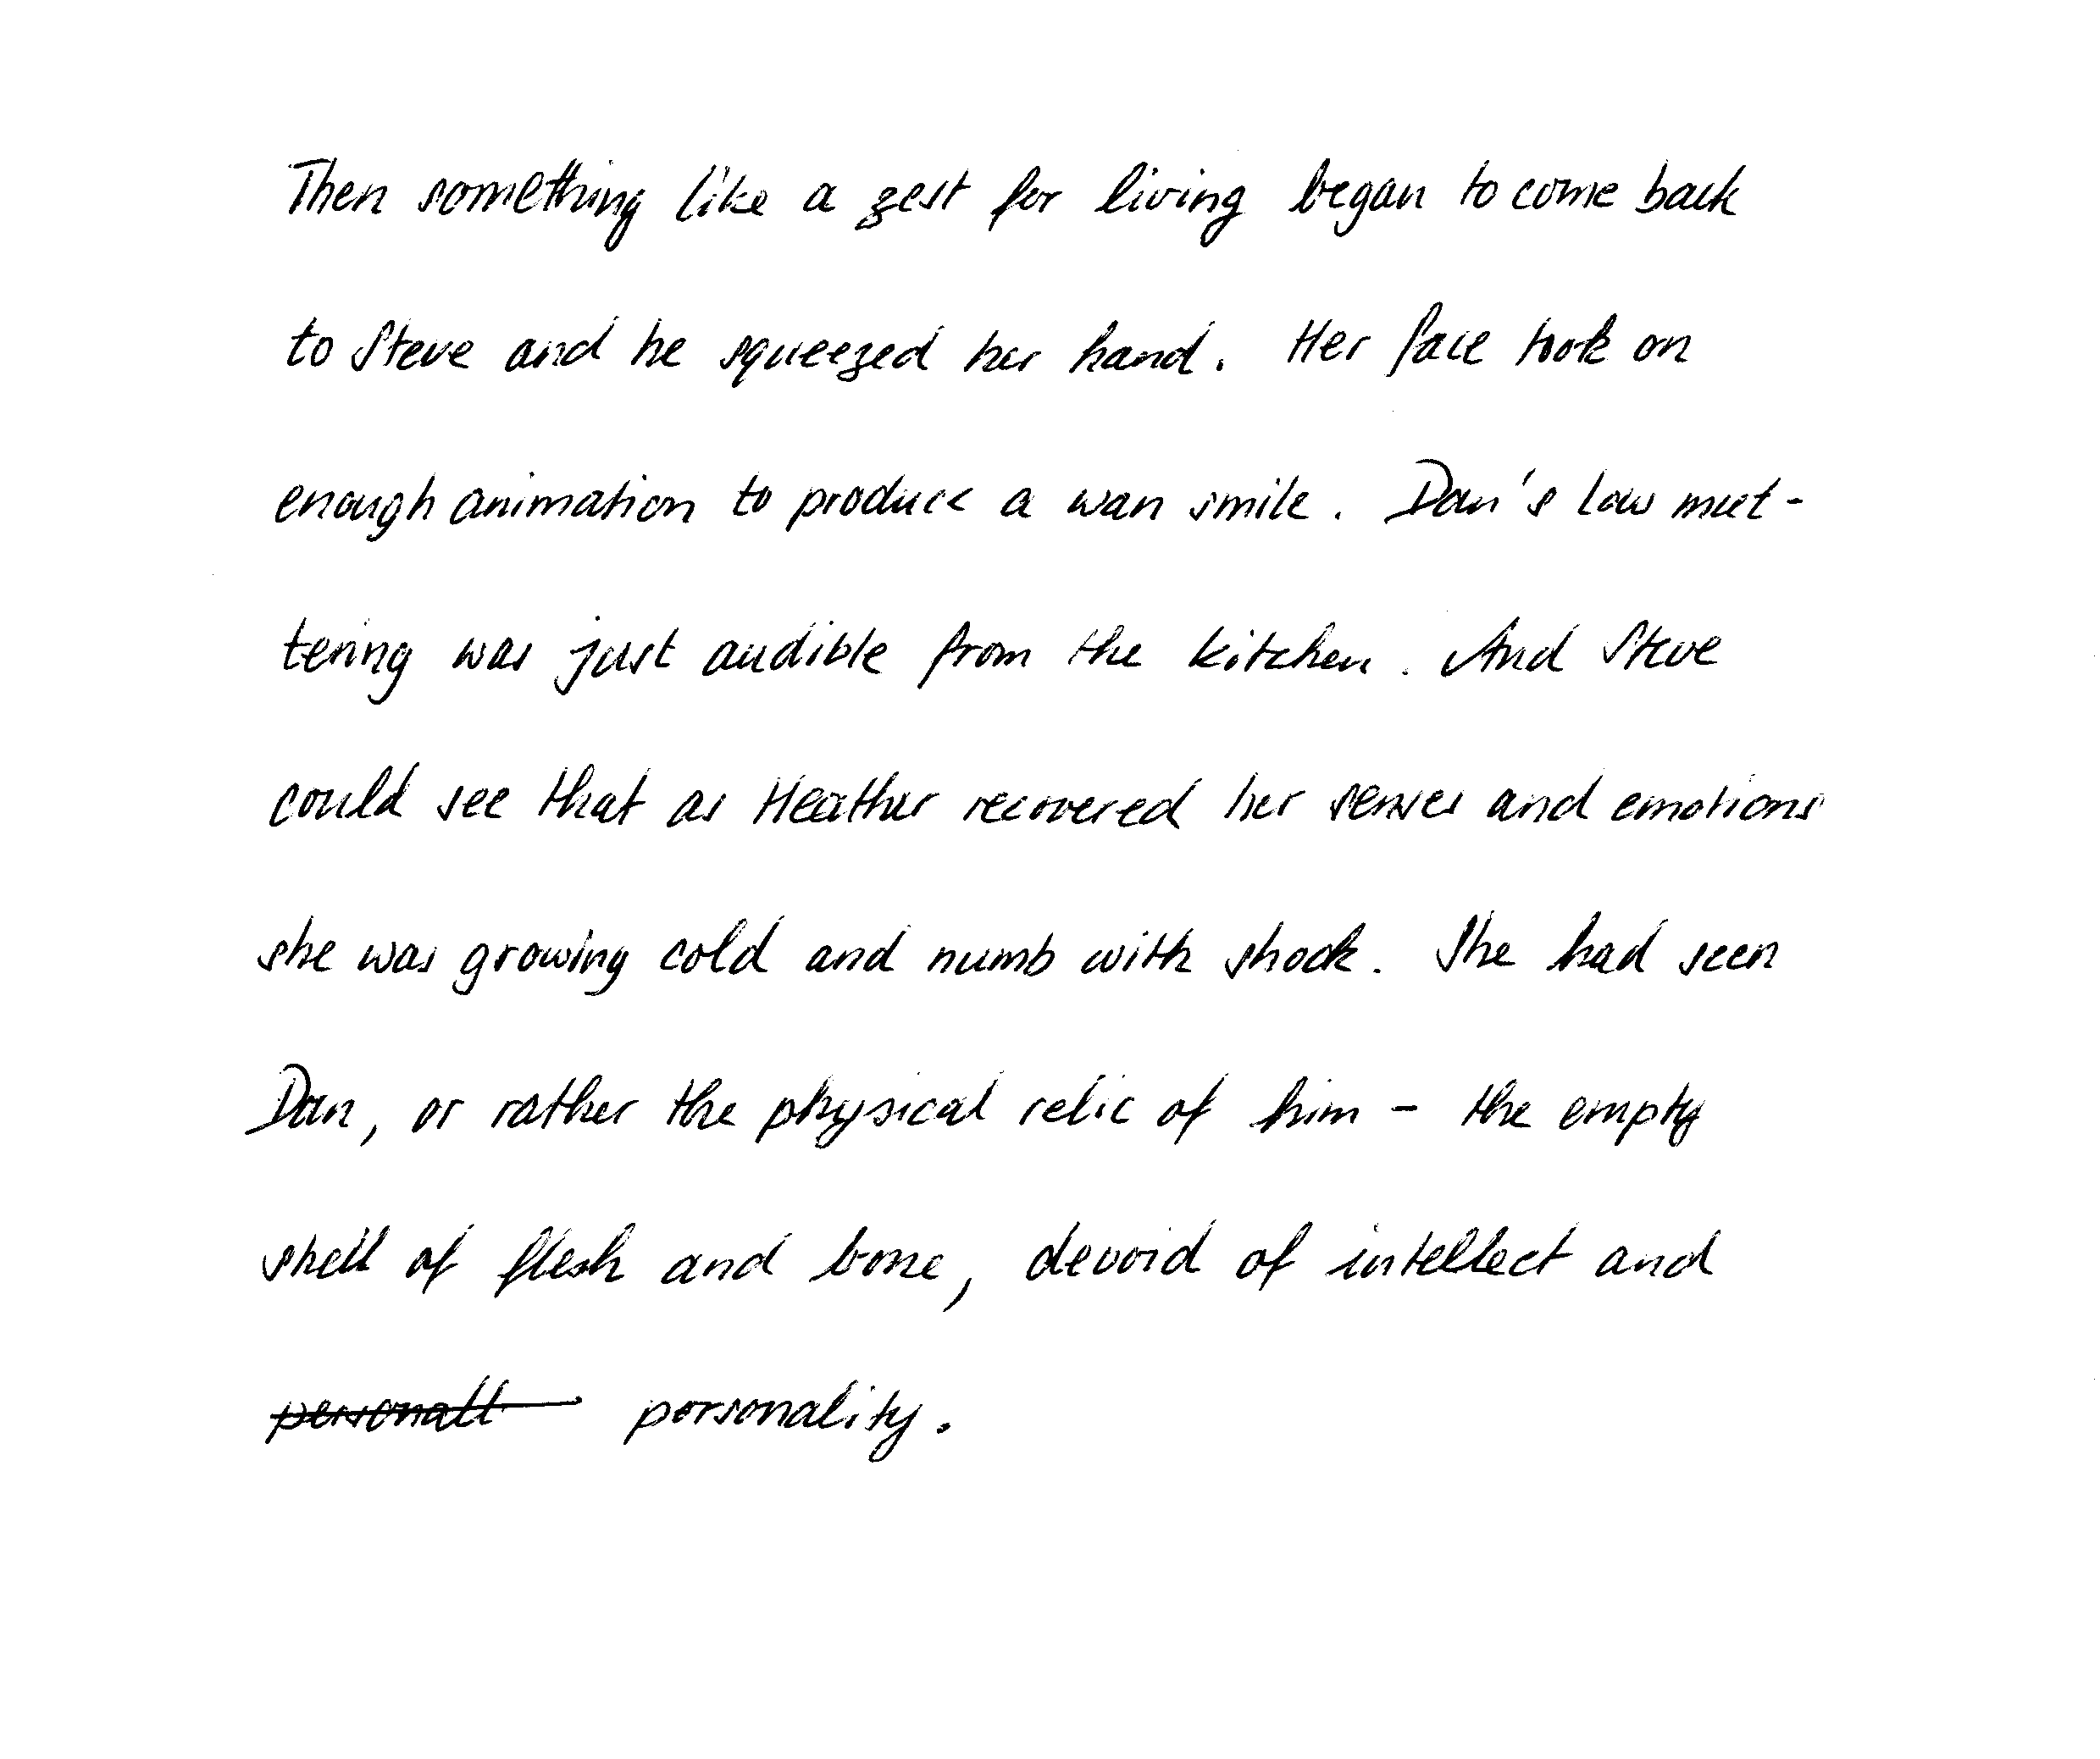 Then something like a zest for living began to come back
to Steve and he squeezed her hand. Her face took on
enough animation to produce a wan smile. Dan's low mut-
tering was just audible from the kitchen. And Steve
could see that as Heather recovered her senses and emotions
she was growing cold and numb with shock. She had seen
Dan, or rather the physical relic of him - the empty
shell of flesh and bone, devoid of intellect and
personalt personality.